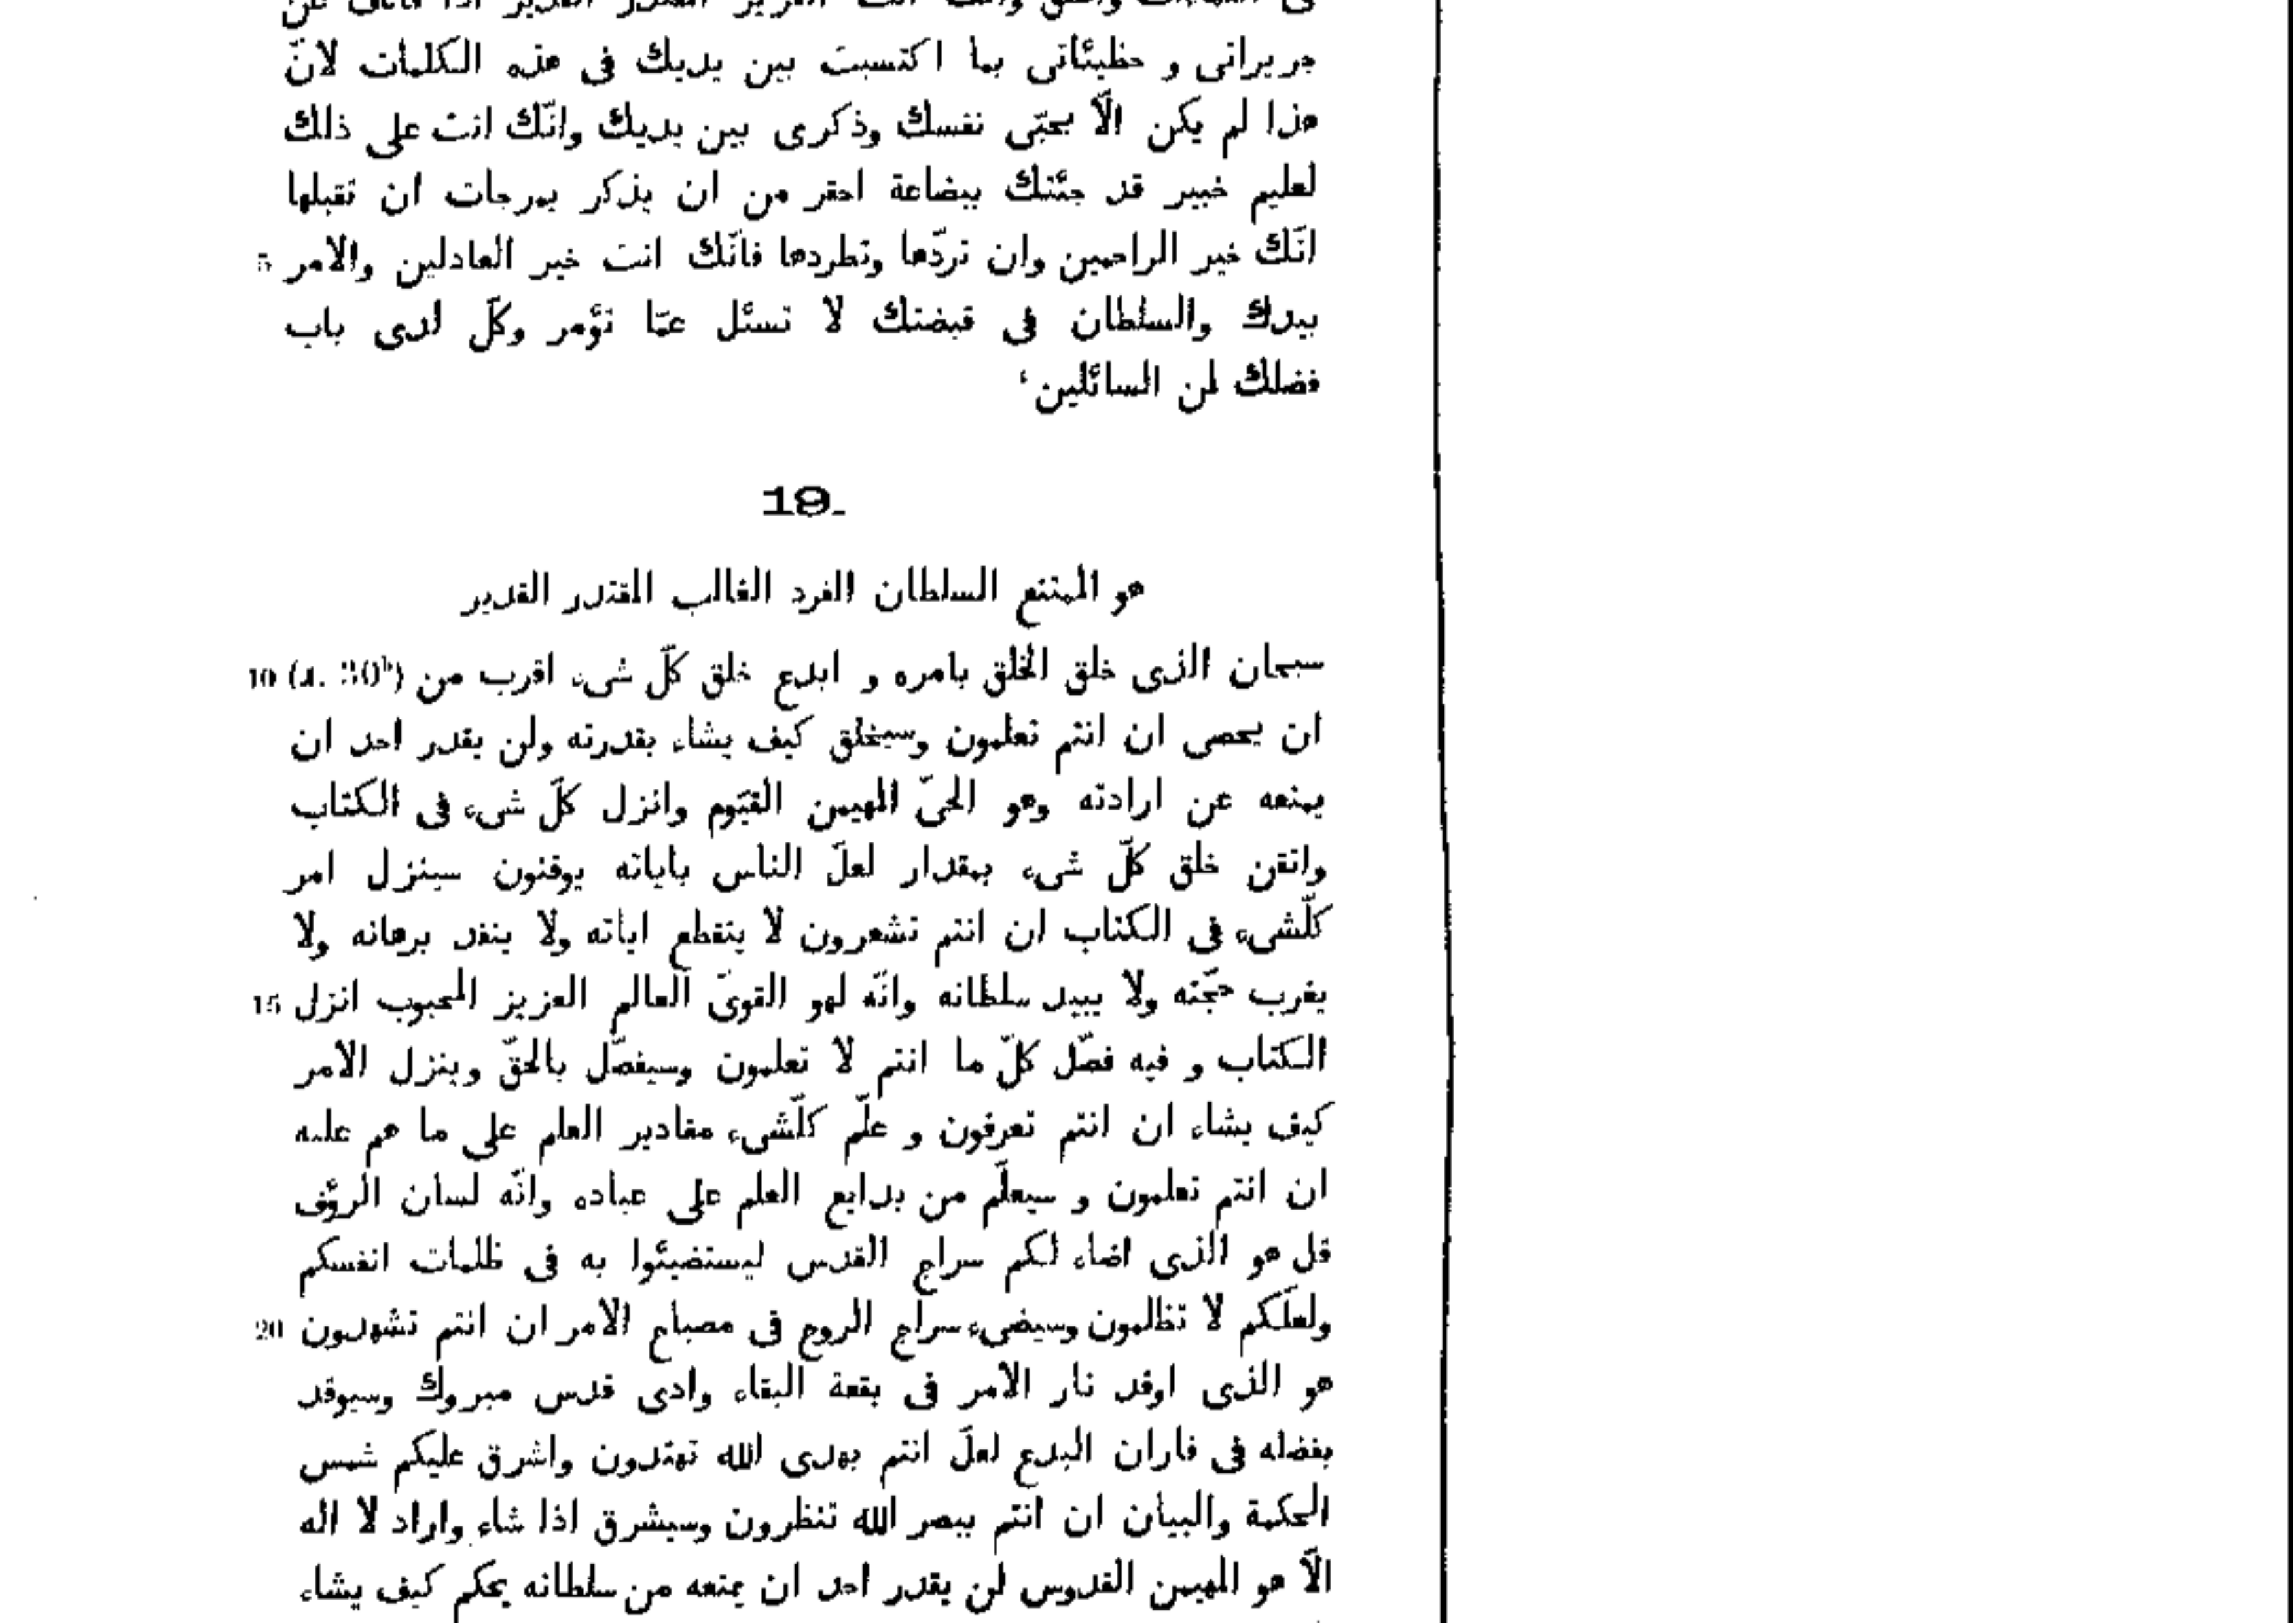 جريراتى و خطيئاتى بما اكتسبت بين يديك فى هذه الكلمات لانّ
هذا لم يكن الّا بحبّى نفسك وذكرى بين يديك وانّك انت على ذلك
لعليم خبير قد جئتك ببضاعة احقر من ان يذكر بمرجات ان تقبلها
5 انّك خير الراحمين وان تردّها وتطردها فانّك انت خير العادلين والامر
بيدك والسلطان فى قبضتك لا تسئل عمّا تؤمر وكلّ لدى باب
فضلك لمن السائلين
19.
هو الممتنع السلطان الفرد الغالب المقتدر القدير
10 سبحان الذى خلق الخلق بامره و ابدع خلق كلّ شىء اقرب من (a. 30ᵇ)
ان يحصى ان انتم تعلمون وسيخلق كيف يشاء بقدرته ولن يقدر احد ان
يمنعه عن ارادته وهو الحىّ المهيمن القيّوم وانزل كلّ شىء فى الكتاب
واتقن خلق كلّ شىء بمقدار لعلّ الناس باياته يوقنون سينزل امر
كلّشىء فى الكتاب ان انتم تشعرون لا ينقطع اياته ولا ينفد برهانه ولا
15 يغرب حجّته ولا يبيد سلطانه وانّه لهو القوىّ العالم العزيز المحبوب انزل
الكتاب و فيه فصّل كلّ ما انتم لا تعلمون وسيفصّل بالحقّ وينزل الامر
كيف يشاء ان انتم تعرفون و علّم كلّشىء مقادير العلم على ما هم عليه
ان انتم تعلمون و سيعلّم من بدايع العلم على عباده وانّه لسان الرؤف
قل هو الذى اضاء لكم سراج القدس ليستضيئوا به فى ظلمات انفسكم
20 ولعلّكم لا تظلمون وسيضىء سراج الروح فى مصباح الامر ان انتم تشهدون
هو الذى اوقد نار الامر فى بقعة البقاء وادى قدس مبروك وسيوقد
بفضله فى فاران البدع لعلّ انتم بهدى الله تهتدون واشرق عليكم شمس
الحكمة والبيان ان انتم ببصر الله تنظرون وسيشرق اذا شاء واراد لا اله
الّا هو المهيمن القدوس لن يقدر احد ان يمنعه من سلطانه يحكم كيف يشاء